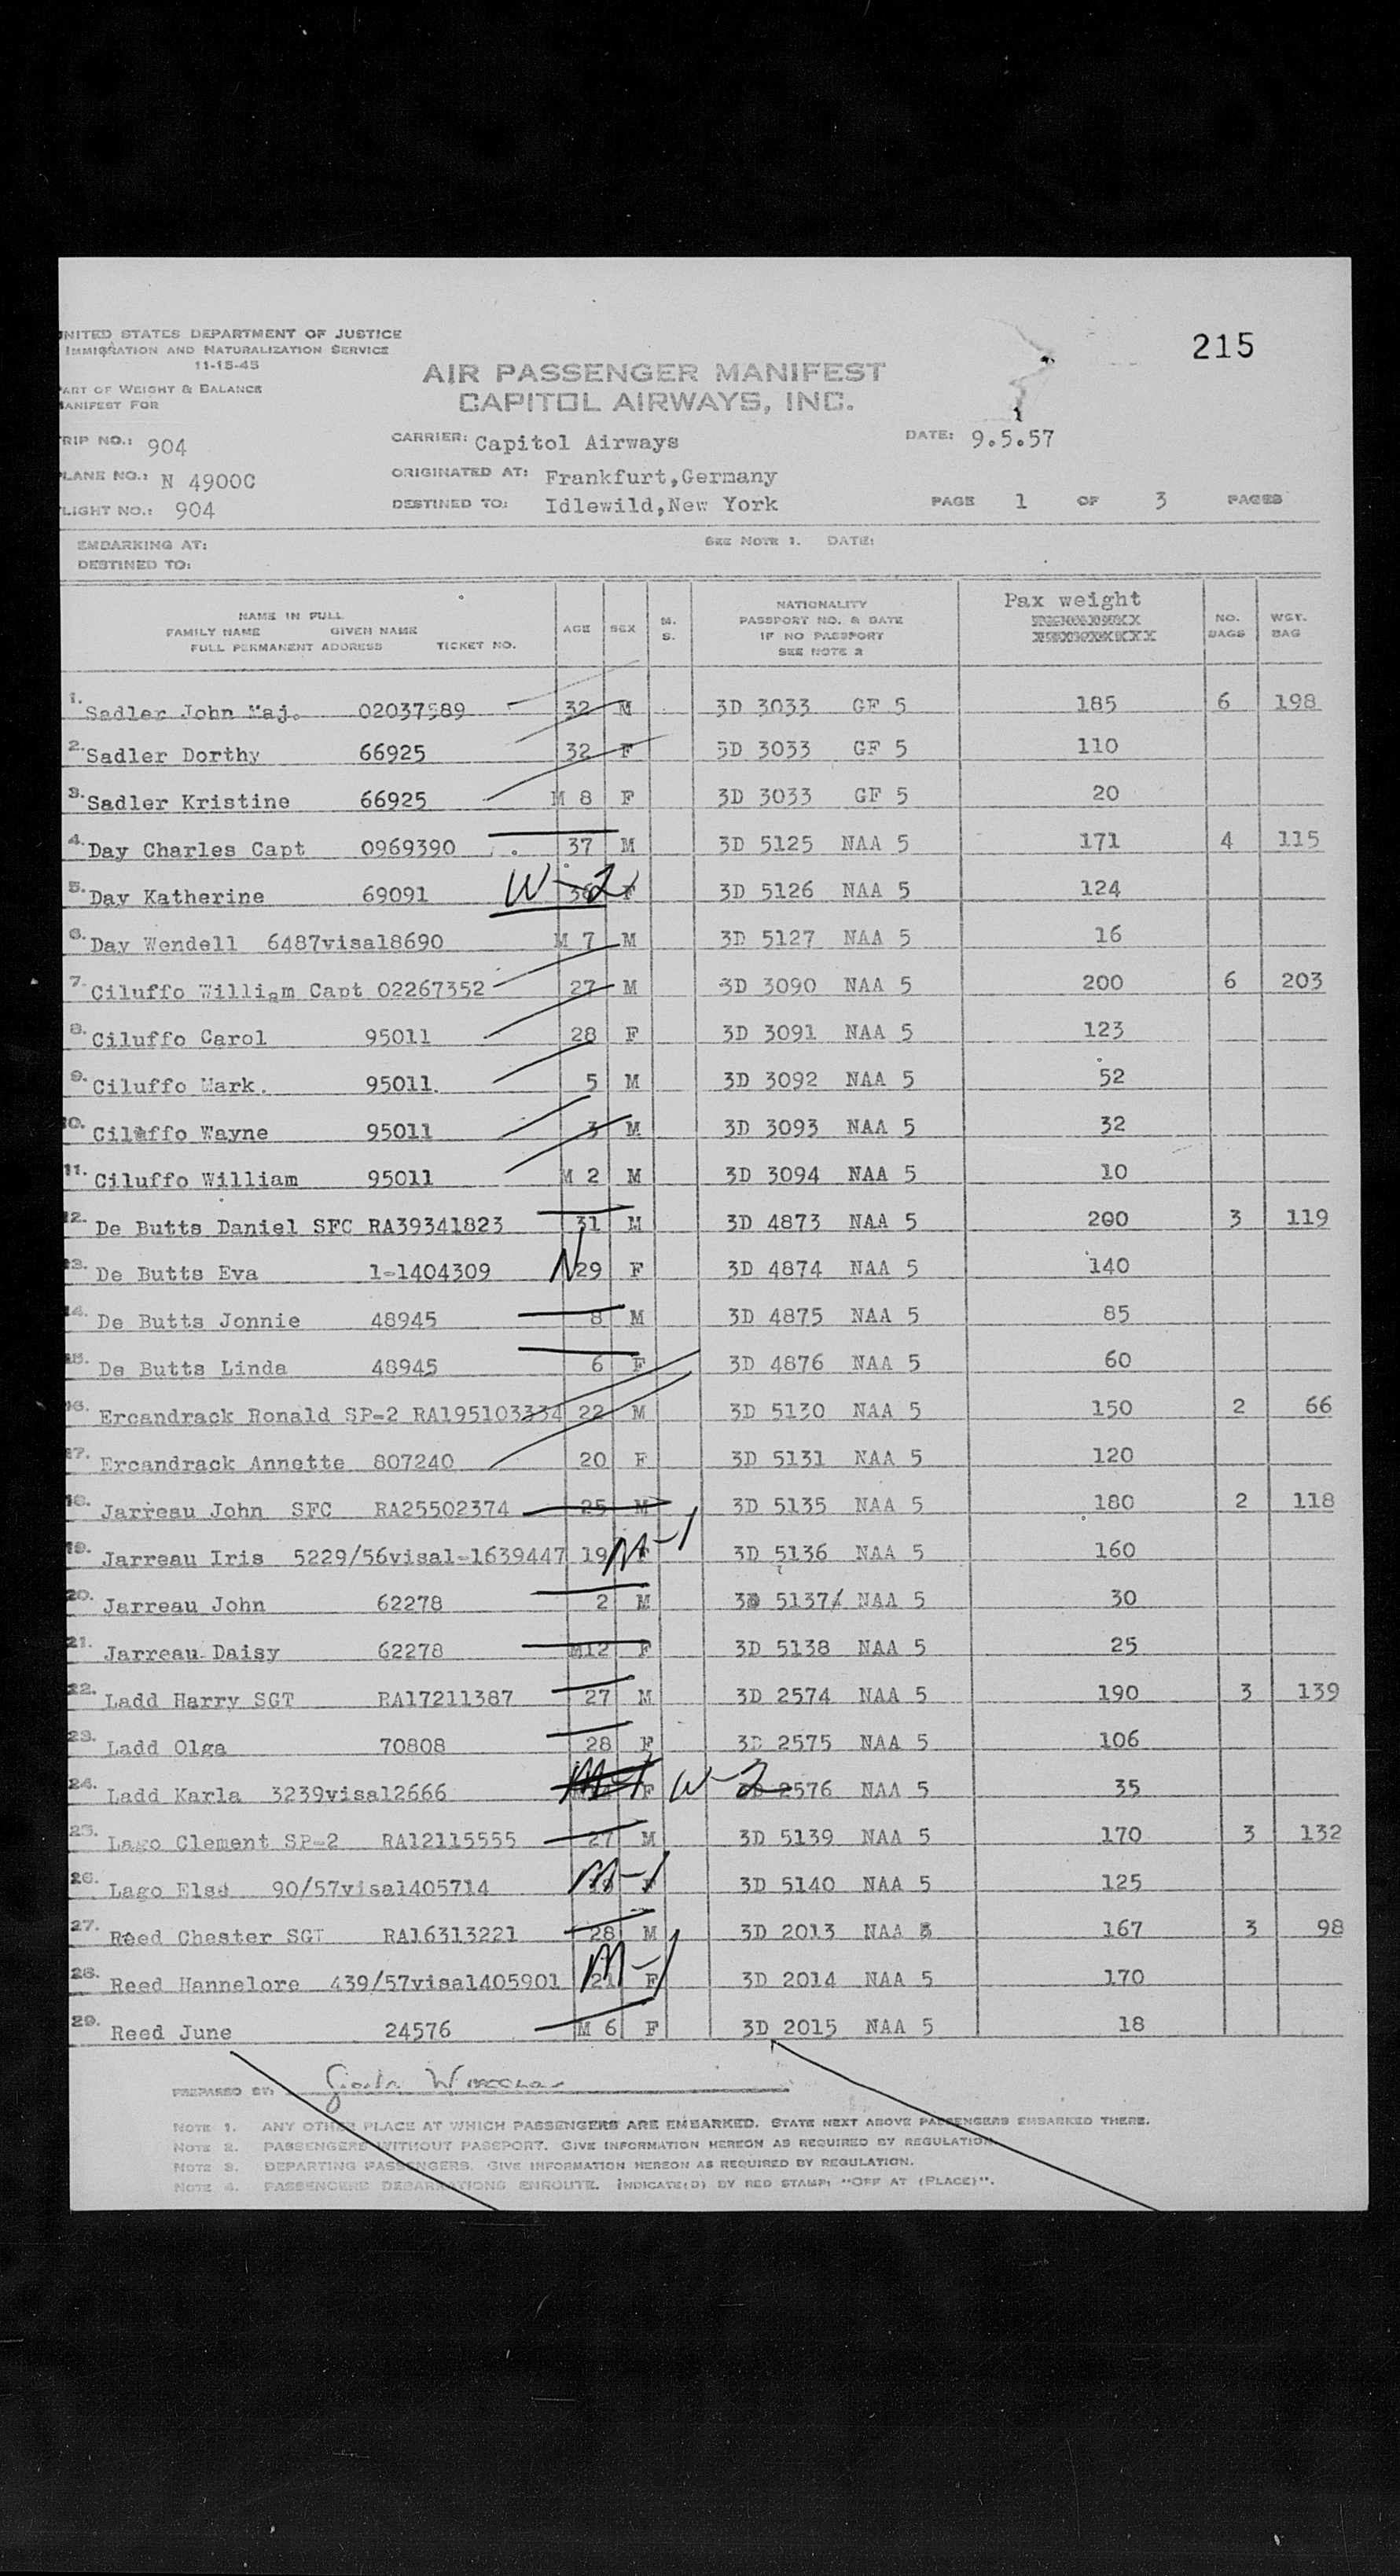 215
UNITED STATES DEPARTMENT OF JUSTICE
IMMIGRATION AND NATURALIZATION SERVICE
11-15-45
PART OF WEIGHT & BALANCE
MANIFEST FOR
AIR PASSENGER MANIFEST
CAPITOL AIRWAYS, INC.
TRIP NO.: 904 CARRIER: Capitol Airways DATE: 9.5.57
PLANE NO.: N 4900C ORIGINATED AT: Frankfurt,Germany
FLIGHT NO.: 904 DESTINED TO: Idlewild,New York PAGE 1 OF 3 PAGES
EMBARKING AT: SEE NOTE 1. DATE:
DESTINED TO:
NAME IN FULL
FAMILY NAME GIVEN NAME
FULL PERMANENT ADDRESS TICKET NO.
AGE SEX M. S.
NATIONALITY
PASSPORT NO. & DATE
IF NO PASSPORT
SEE NOTE 2
Pax weight
NO. BAGS WGT. BAG
1. Sadler John Maj. 02037589 32 M 3D 3033 GF 5 185 6 198
2. Sadler Dorthy 66925 32 F 3D 3033 GF 5 110
3. Sadler Kristine 66925 M 8 F 3D 3033 GF 5 20
4. Day Charles Capt 0969390 37 M 3D 5125 NAA 5 171 4 115
5. Day Katherine 69091 W-2 F 3D 5126 NAA 5 124
6. Day Wendell 6487visa18690 M 7 M 3D 5127 NAA 5 16
7. Ciluffo William Capt 02267352 27 M 3D 3090 NAA 5 200 6 203
8. Ciluffo Carol 95011 28 F 3D 3091 NAA 5 123
9. Ciluffo Mark. 95011. 5 M 3D 3092 NAA 5 52
10. Ciluffo Wayne 95011 3 M 3D 3093 NAA 5 32
11. Ciluffo William 95011 M 2 M 3D 3094 NAA 5 10
12. De Butts Daniel SFC RA39341823 31 M 3D 4873 NAA 5 200 3 119
13. De Butts Eva 1-1404309 N 29 F 3D 4874 NAA 5 140
14. De Butts Jonnie 48945 8 M 3D 4875 NAA 5 85
15. De Butts Linda 48945 6 F 3D 4876 NAA 5 60
16. Ercandrack Ronald SP-2 RA195103334 22 M 3D 5130 NAA 5 150 2 66
17. Ercandrack Annette 807240 20 F 3D 5131 NAA 5 120
18. Jarreau John SFC RA25502374 25 M 3D 5135 NAA 5 180 2 118
19. Jarreau Iris 5229/56visa1-1639447 19 M-1 3D 5136 NAA 5 160
20. Jarreau John 62278 2 M 3D 5137/ NAA 5 30
21. Jarreau Daisy 62278 M12 F 3D 5138 NAA 5 25
22. Ladd Harry SGT RA17211387 27 M 3D 2574 NAA 5 190 3 139
23. Ladd Olga 70808 28 F 3D 2575 NAA 5 106
24. Ladd Karla 3239visa12666 F W-2 3D 2576 NAA 5 35
25. Lago Clement SP-2 RA12115555 27 M 3D 5139 NAA 5 170 3 132
26. Lago Else 90/57visa1405714 M-1 3D 5140 NAA 5 125
27. Reed Chester SGT RA16313221 28 M 3D 2013 NAA 5 167 3 98
28. Reed Hannelore 439/57visa1405901 21 M-1 F 3D 2014 NAA 5 170
29. Reed June 24576 M 6 F 3D 2015 NAA 5 18
PREPARED BY:
NOTE 1. ANY OTHER PLACE AT WHICH PASSENGERS ARE EMBARKED. STATE NEXT ABOVE PASSENGERS EMBARKED THERE.
NOTE 2. PASSENGERS WITHOUT PASSPORT. GIVE INFORMATION HEREON AS REQUIRED BY REGULATION.
NOTE 3. DEPARTING PASSENGERS. GIVE INFORMATION HEREON AS REQUIRED BY REGULATION.
NOTE 4. PASSENGERS DEBARKATIONS ENROUTE. INDICATE(D) BY RED STAMP: "OFF AT (PLACE)".